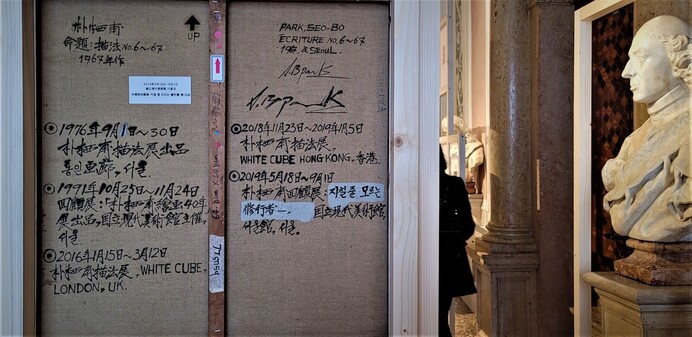 朴栖甫
命題: 描法 No.6~67
1967年作
UP
1976年9月1日~30日
朴栖甫描法展出品
통인画廊, 서울
1991年10月25日~11月24日
回顧展: "朴栖甫繪画40年
展出品, 国立現代美術館主催,
서울
2016年1月15日~3月12日
朴栖甫描法展, WHITE CUBE,
LONDON, UK.
PARK, SEO-BO
ECRITURE No.6~67
SEOUL
2018年11月23日~2019年1月5日
朴栖甫描法展
WHITE CUBE HONG KONG, 香港.
2019年5月18日~9月1日
朴栖甫回顧展: 지칠 줄 모르는
修行者—. 国立現代美術館,
서울館, 서울.